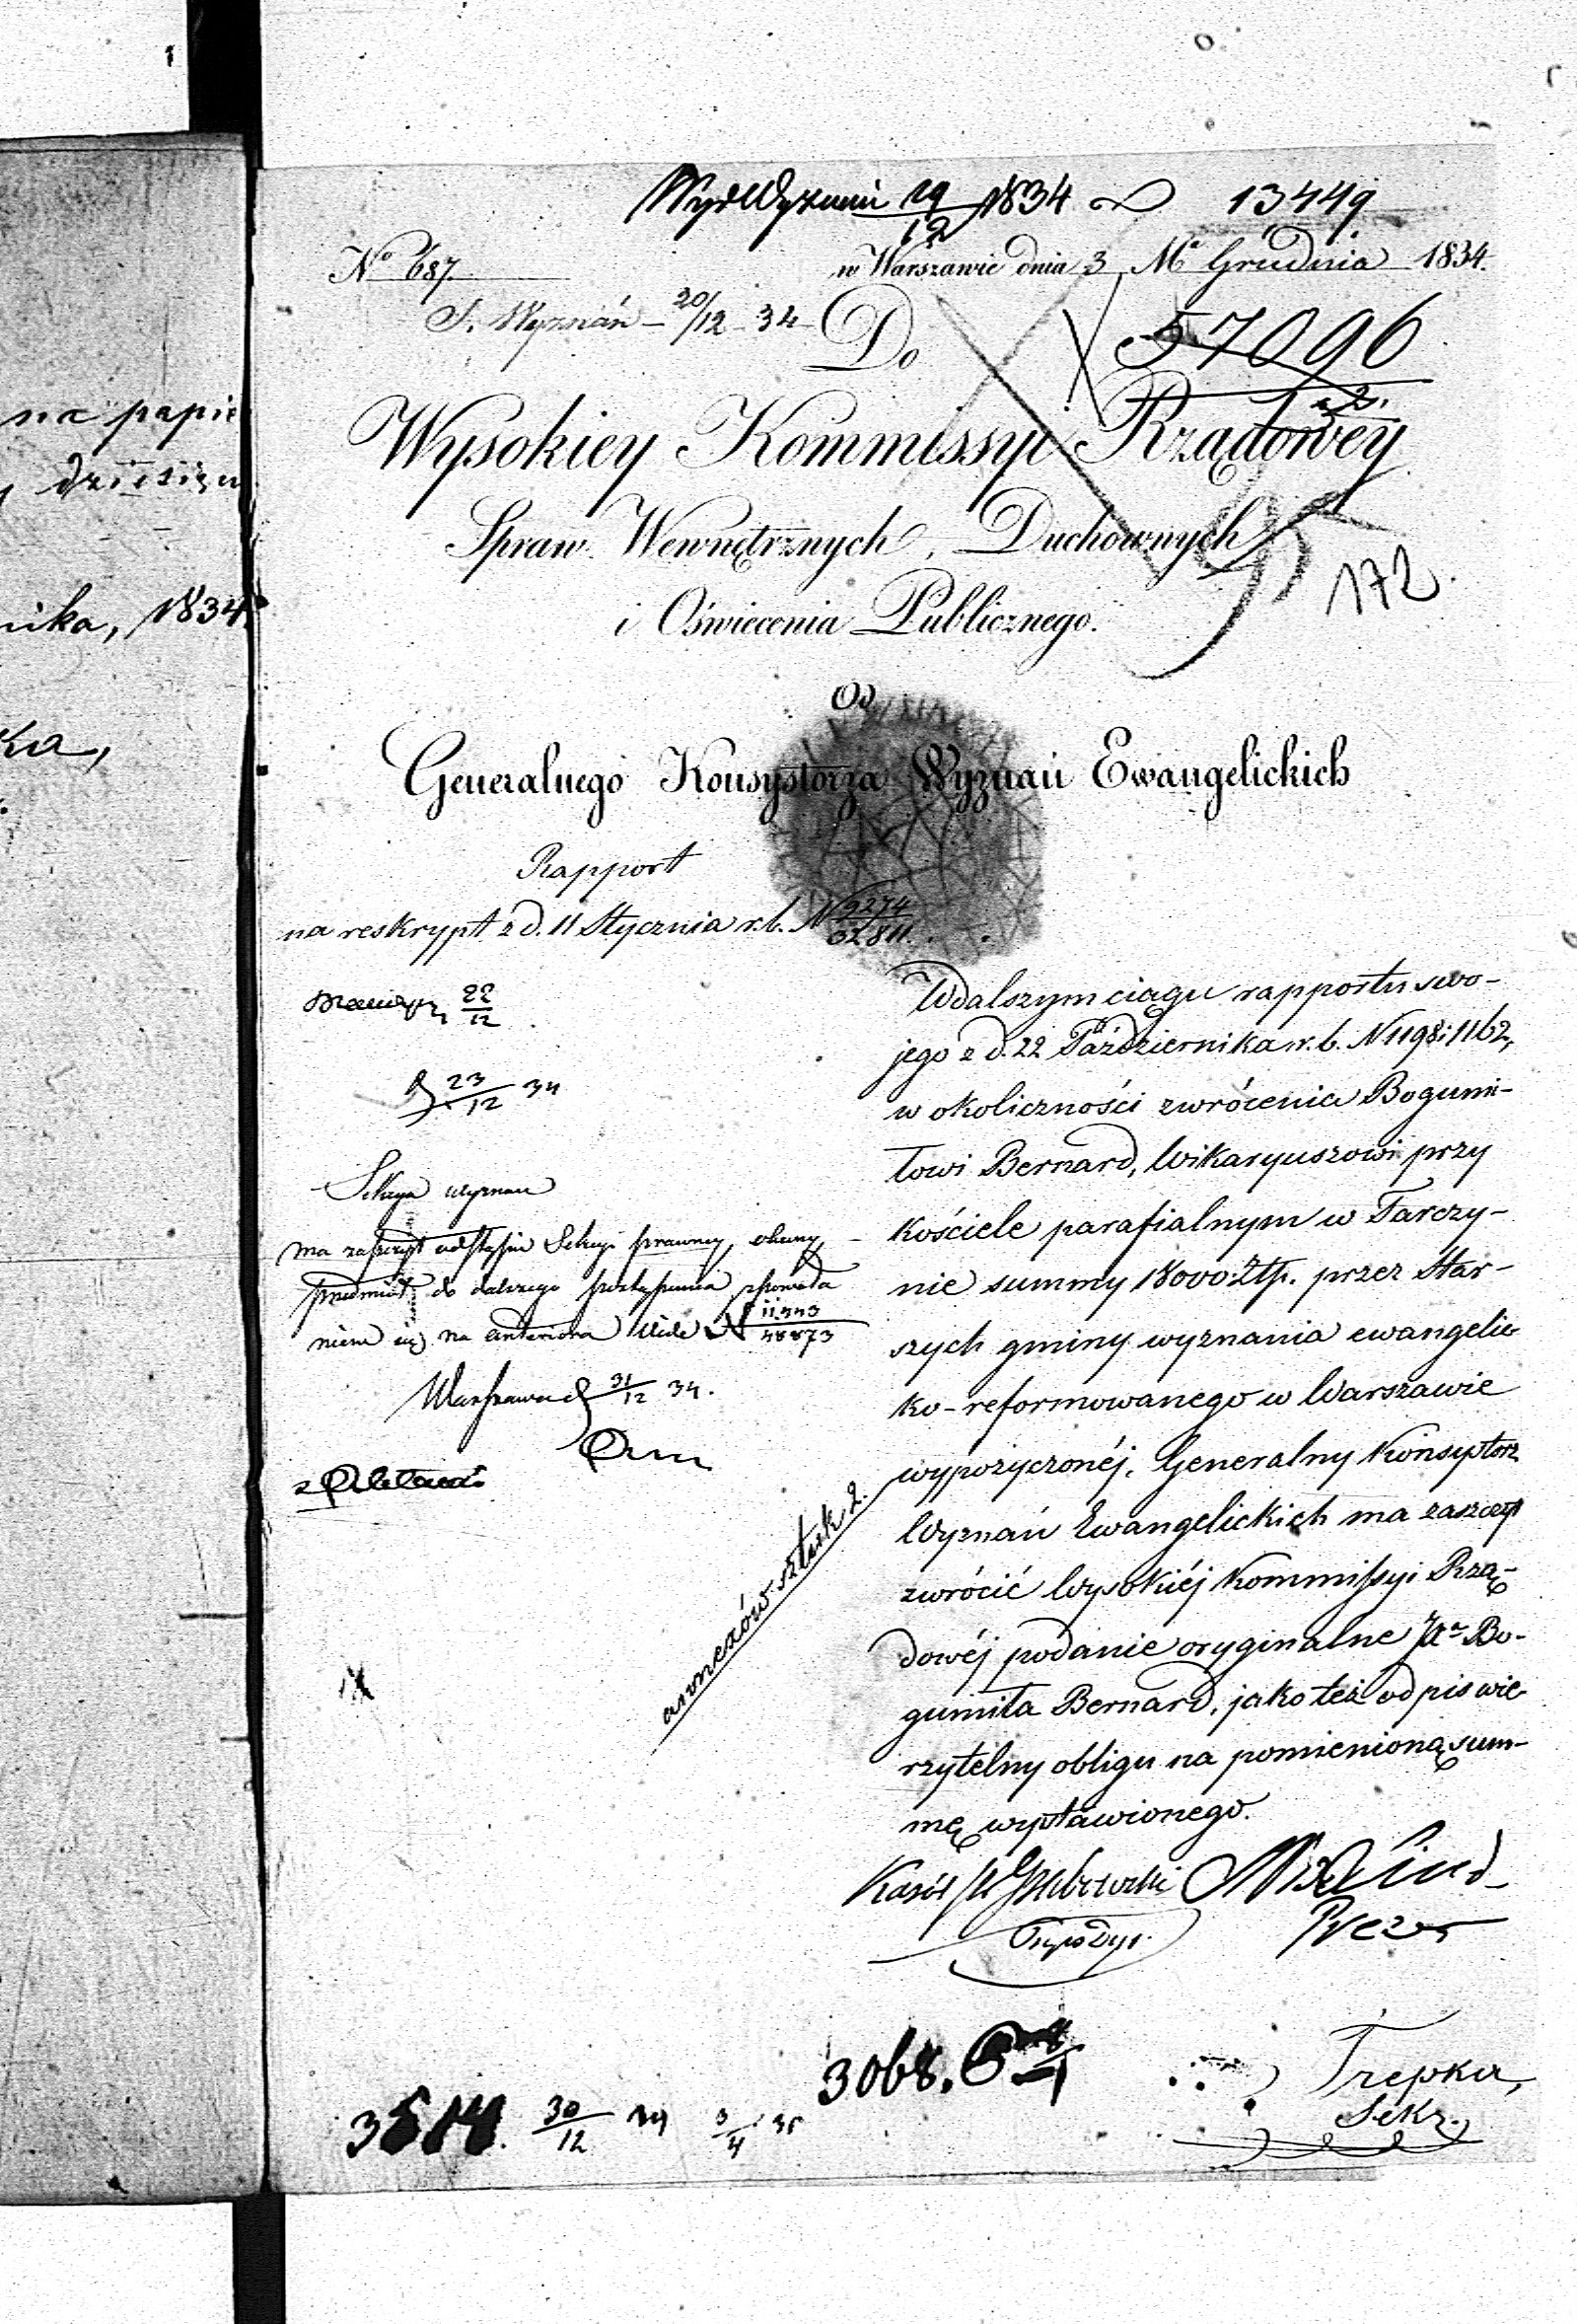 na papie
dziesięu
nika, 1834.
ka,
19/12 1834 13449
No 687.
w Warszawie dnia 3 Ma Grudnia 1834.
S. Wyznań - 20/12 - 34 -
Do
57096
Wysokiey Kommissyi Rządowey
Spraw Wewnętrznych, Duchownych
i Oświecenia Publicznego.
172
Od
Generalnego Konsystorza Wyznań Ewangelickich
Rapport
na reskrypt z d. 11 Stycznia r. b. N 9274/32811.
22/12
23/12 34
W dalszym ciągu rapportu swo-
jego z d. 22 Października r. b. N 1198 i 1162,
w okoliczności zwrócenia Bogumi-
łowi Bernard, Wikaryuszowi przy
kościele parafialnym w Tarczy-
nie summy 18000 Złp. przez Star-
szych gminy wyznania ewangelic-
ko-reformowanego w Warszawie
wypożyczonéj, Generalny Konsystorz
Wyznań Ewangelickich ma zaszczyt
zwrócić Wysokiéj Kommissyi Rzą-
dowéj podanie oryginalne Ja Bo-
gumiła Bernard, jako też odpis wie-
rzytelny obligu na pomienioną sum-
mę wystawionego.
Sekcya wyznań
ma zaszczyt odstąpić Sekcyi prawney, obecny
przedmiot do dalszego postąpienia z powoła
niem się na anteriora N 11443/48873
Warszawa d 31/12 34.
annexów sztuk 2.
Prezes
Trepka,
Sekr.
3068.
3514. 30/12 34 3/4 35